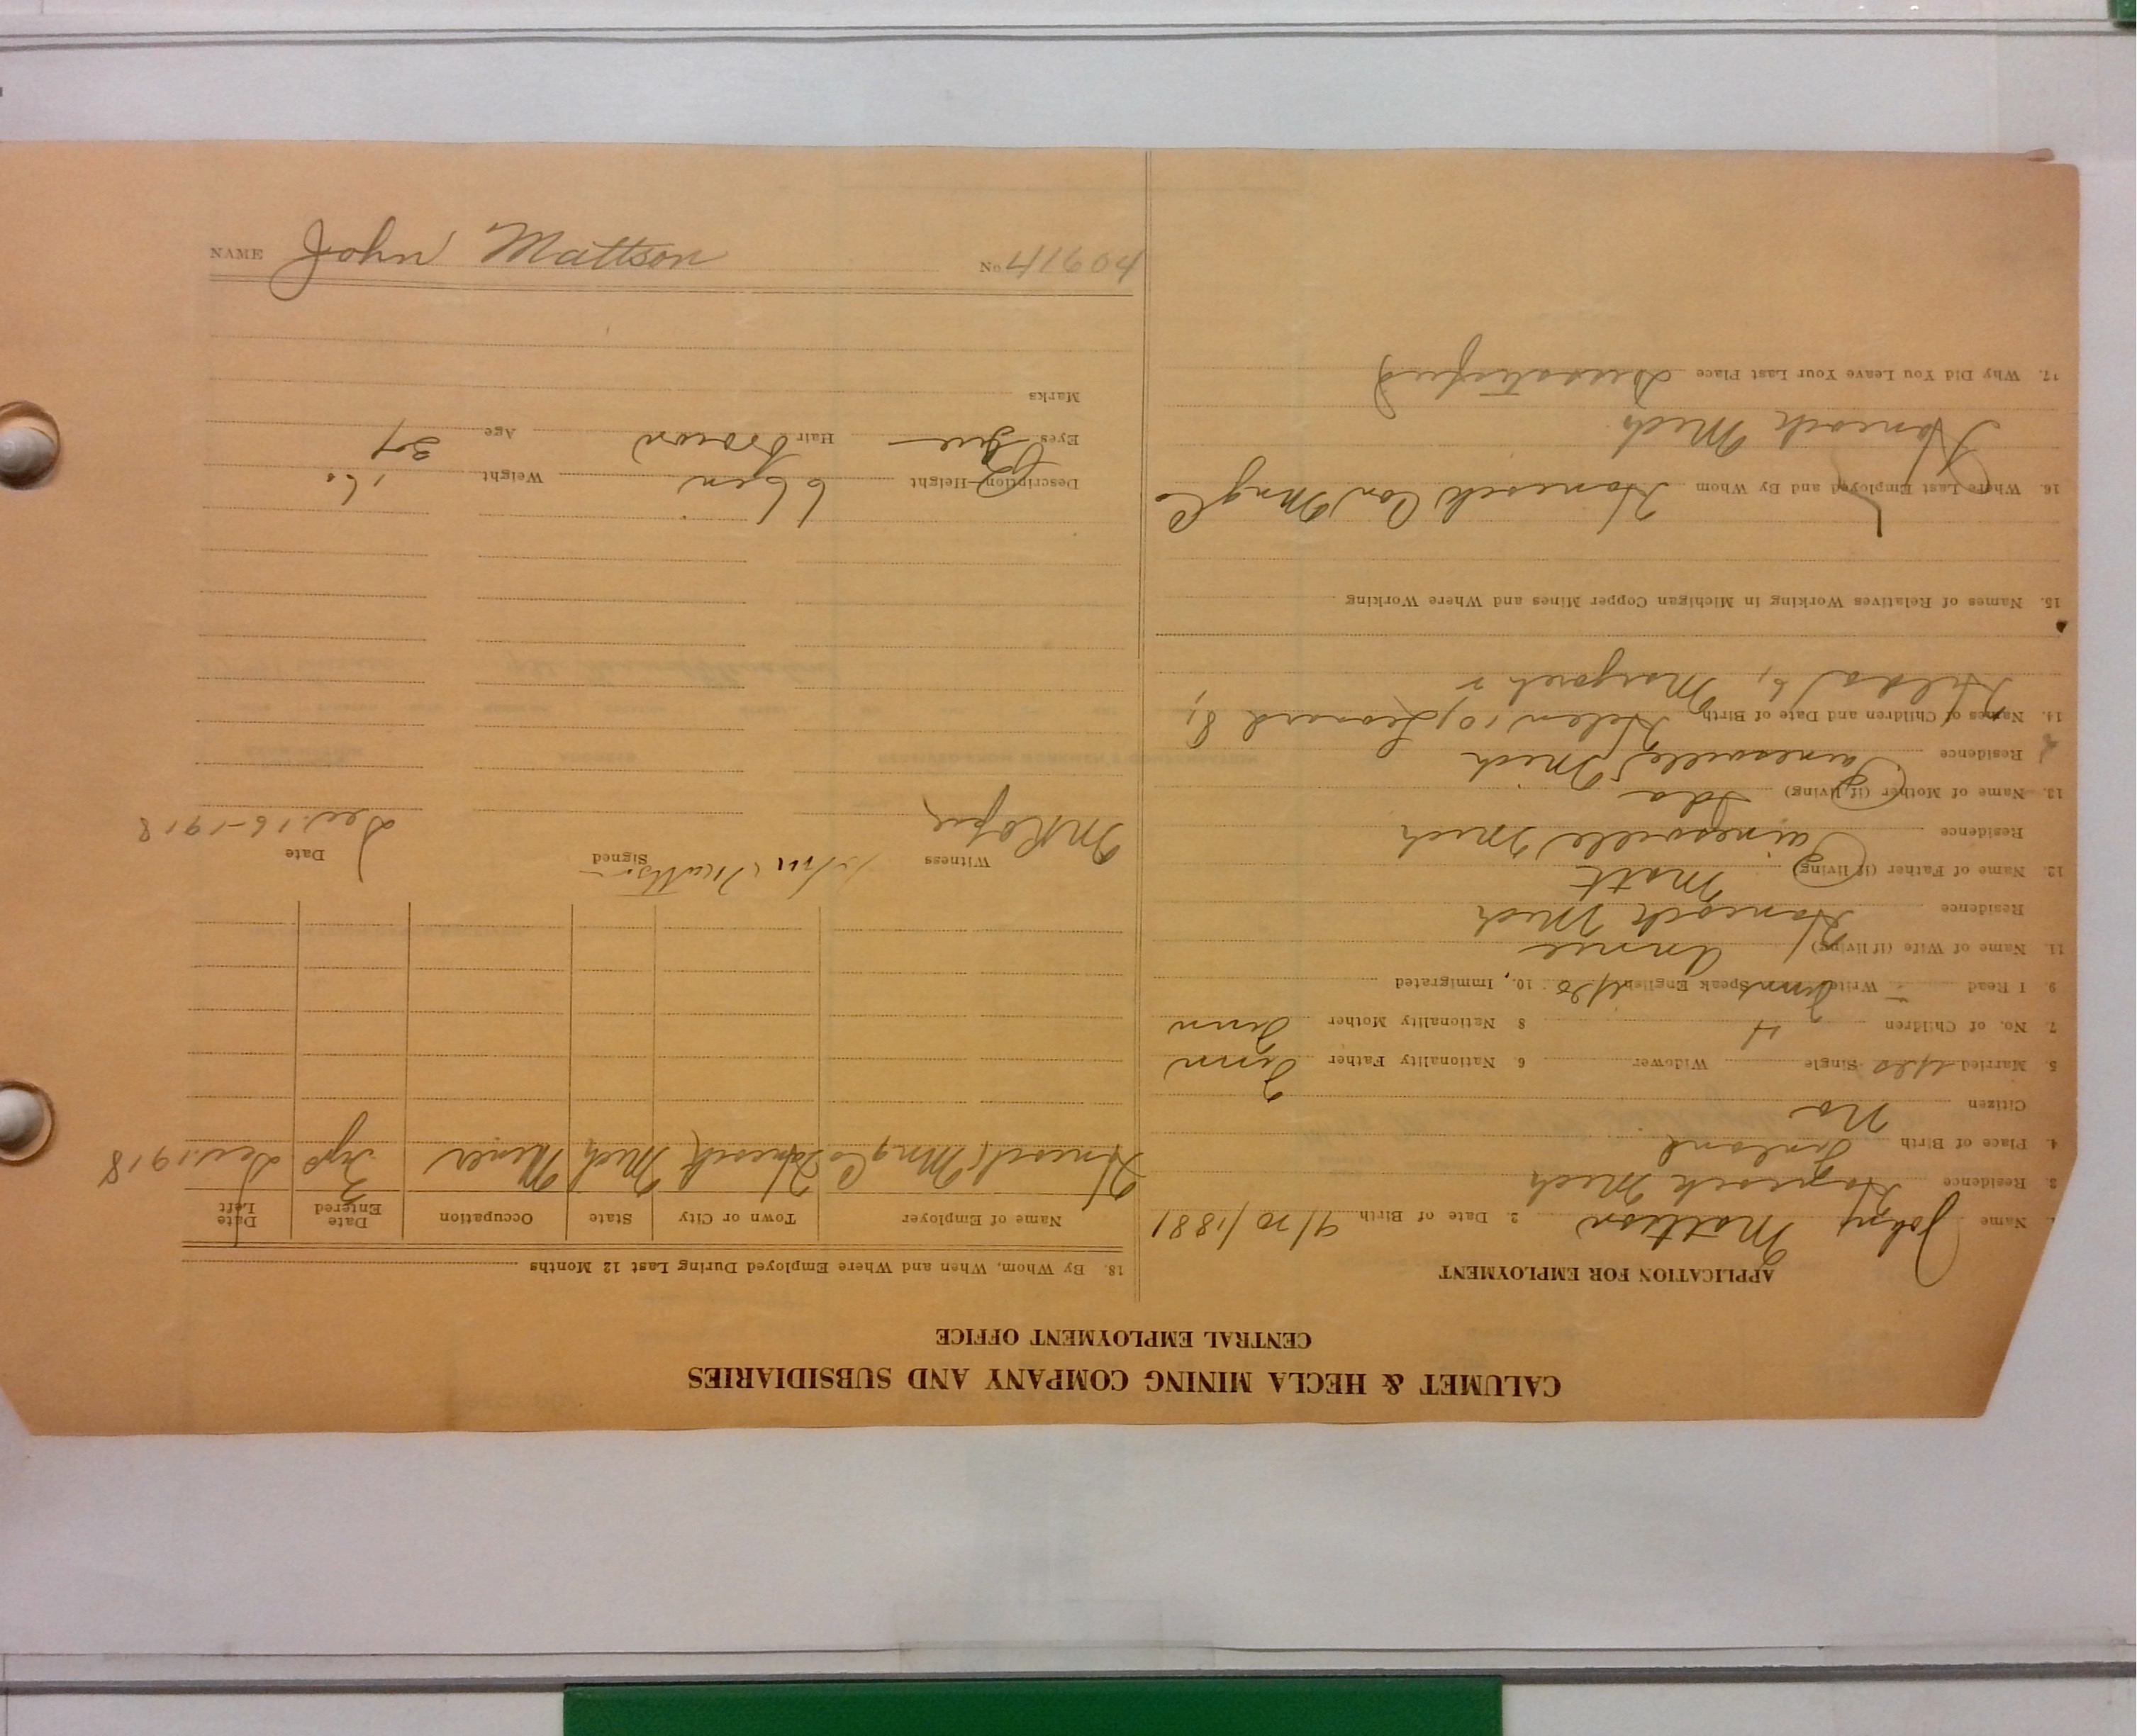 CALUMET & HECLA MINING COMPANY AND SUBSIDIARIES
CENTRAL EMPLOYMENT OFFICE
APPLICATION FOR EMPLOYMENT
1. Name John Mattson 2. Date of Birth 9/20/1881
3. Residence Hancock Mich
4. Place of Birth Finland
Citizen No
5. Married Yes Single Widower 6. Nationality Father Finn
7. No. of Children 4 8 Nationality Mother Finn
9. I Read Write Finn Speak English Yes 10. Immigrated
11. Name of Wife (if living) Annie
Residence Hancock Mich
12. Name of Father (if living) Matt
Residence Painesville Mich
13. Name of Mother (if living) Ida
Residence Painesville, Mich
14. Names of Children and Date of Birth Helen 10, Leonard 8,
Hilda 6, Margaret 2
15. Names of Relatives Working in Michigan Copper Mines and Where Working
16. Where Last Employed and By Whom Hancock Con Mng Co
Hancock Mich
17. Why Did You Leave Your Last Place Dissatisfied
18. By Whom, When and Where Employed During Last 12 Months
Name of Employer Town or City State Occupation Date Entered Date Left
Hancock Mng Co Hancock Mich Miner 3 yrs Dec. 1918
Witness Signed John Mattson Date Dec. 16-1918
Description—Height 6 ft Weight 160
Eyes Blue Hair Brown Age 37
Marks
NAME John Mattson No. 41604